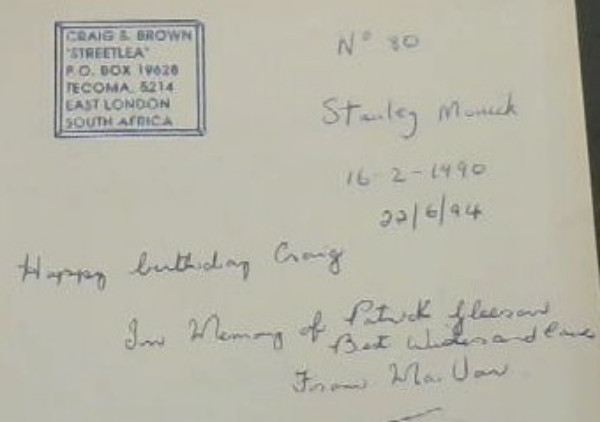 CRAIG S. BROWN
"STREETLEA"
P.O. BOX 19628
TECOMA, 5214
EAST LONDON
SOUTH AFRICA
Nº 80
Stanley Monick
16-2-1990
22/6/94
Happy birthday Craig
In Memory of Patrick Gleeson
Best Wishes and love
From Ma. Van